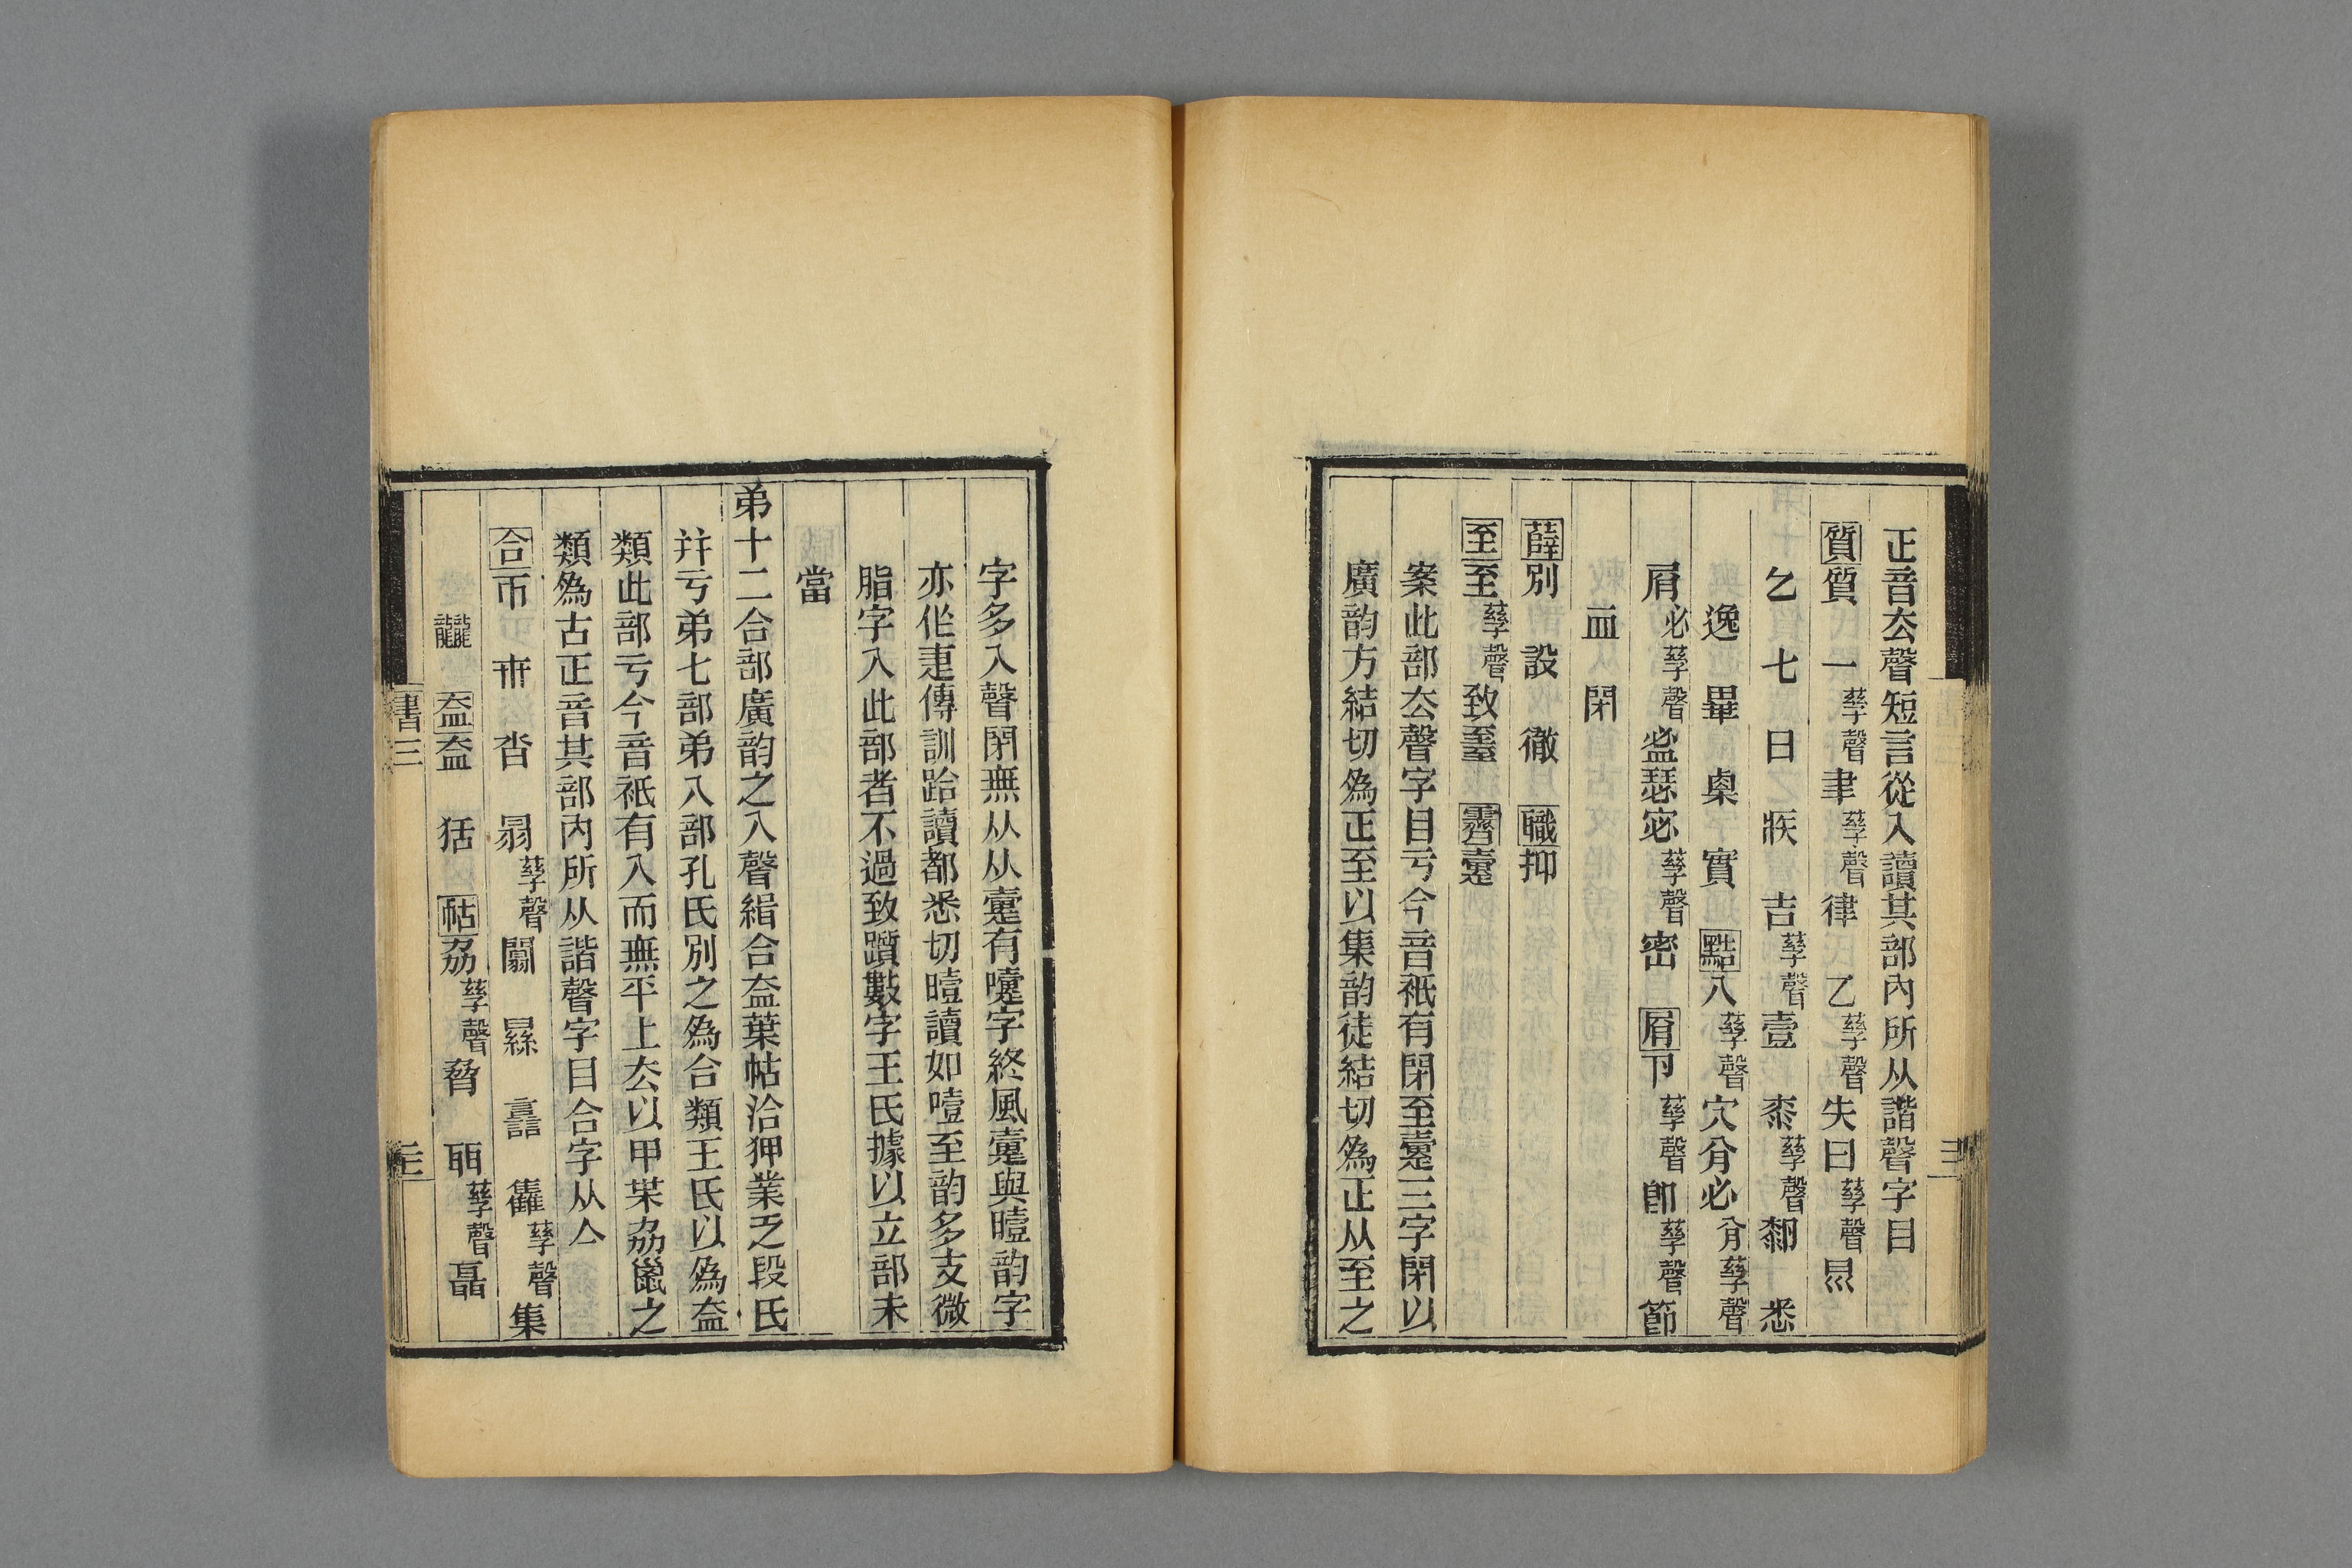 正音厺聲短言從入讀其部內所从諧聲字目
質質 一孳聲聿孳聲律 乙孳聲失日孳聲㬎
乞 七 日 疾 吉孳聲壹 桼孳聲䵑 悉
逸 畢 㮚 實 黠八孳聲穴㕣必㕣孳聲
屑必孳聲 瑟宓孳聲密 屑卪孳聲卽孳聲節
血 閉
薛別 設 徹 職抑
至至孳聲致臸 霽疐
案此部厺聲字目亏今音祇有閉至疐三字閉以
廣韵方結切爲正至以集韵徒結切爲正从至之
字多入聲閉無从从疐有嚏字終風疐與曀韵字
亦作疌傳訓跲讀都悉切曀讀如噎至韵多支微
脂字入此部者不過致躓數字王氏據以立部未
當
弟十二合部廣韵之入聲緝合盍葉帖洽狎業乏段氏
幷亏弟七部弟八部孔氏別之爲合類王氏以爲盍
類此部亏今音祇有入而無平上厺以甲枼劦巤之
類爲古正音其部內所从諧聲字目合字从亼
合帀 卅 沓 㬱孳聲闟 㬎 譶 雥孳聲集
龖 盍盍 狧 帖劦孳聲脅 耴孳聲聶
書三